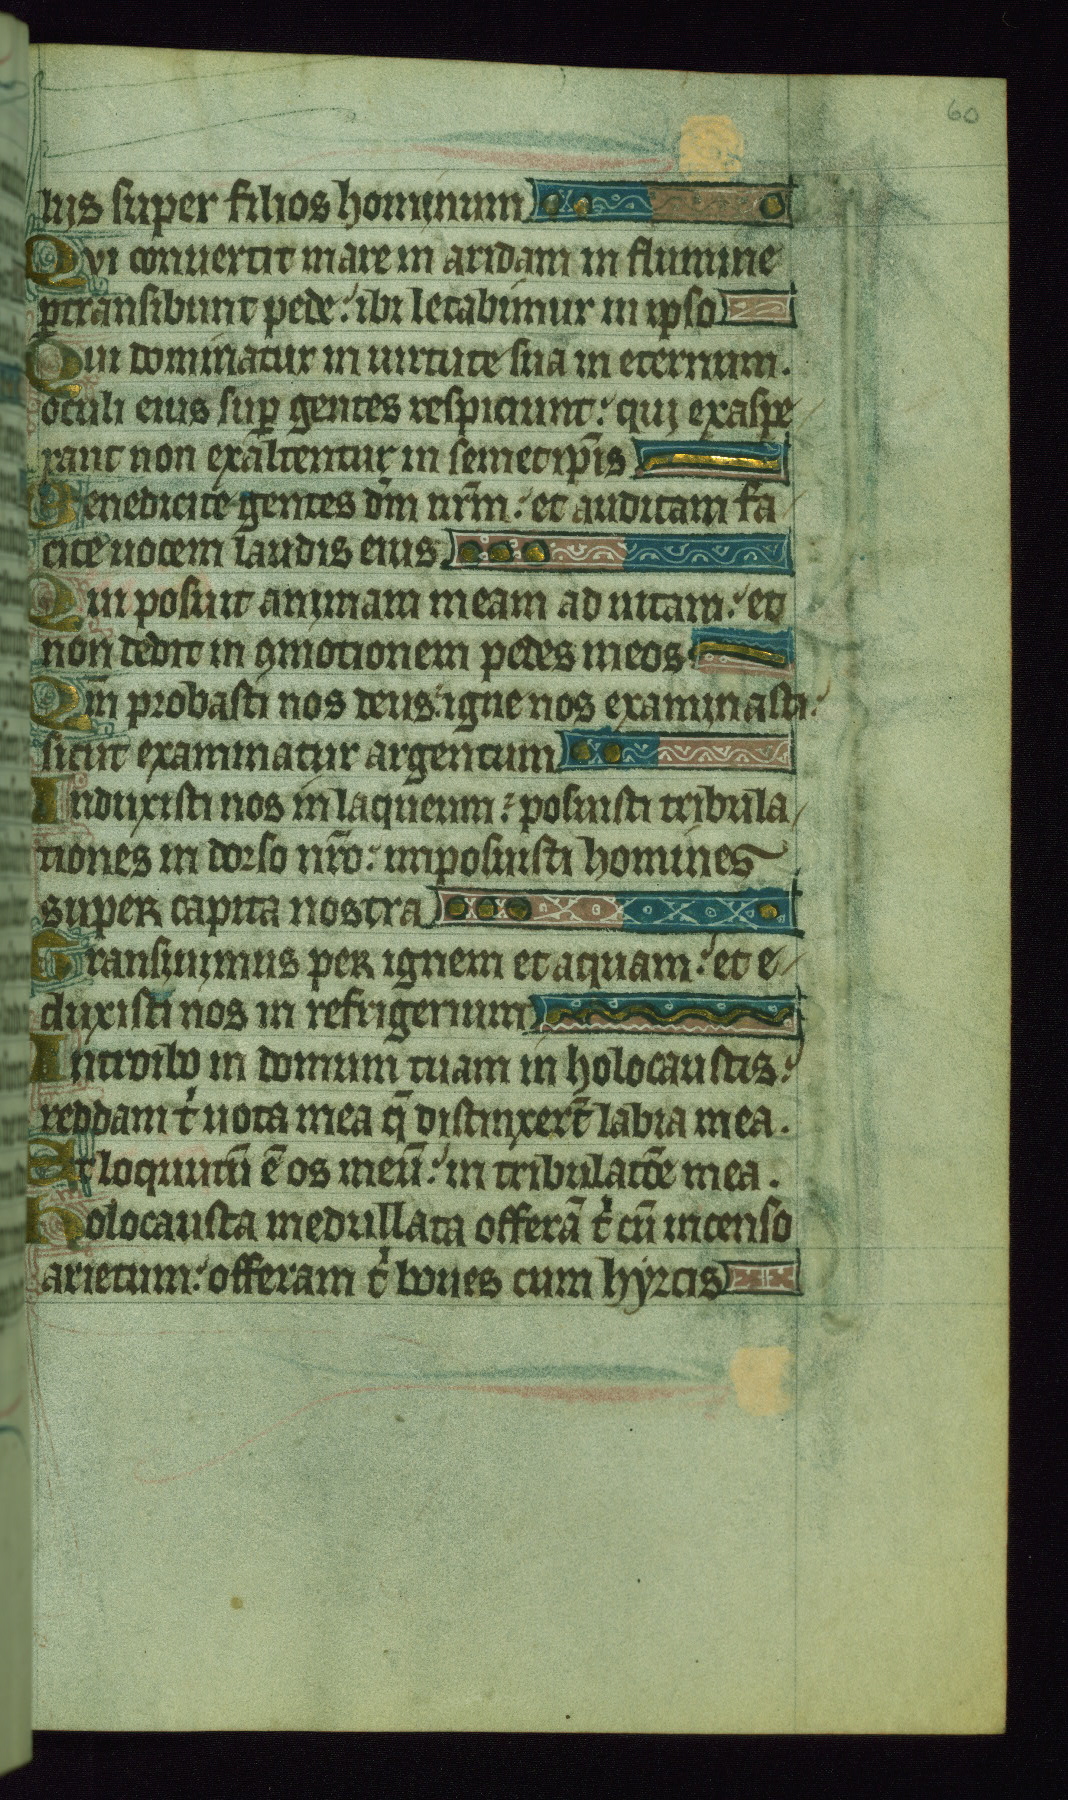 60
liis super filios hominum
Qvi conuertit mare in aridam in flumine
ꝑtransibunt pede: ibi letabimur in ipso
Qui dominatur in uirtute sua in eternum.
oculi eius suꝑ gentes respiciunt: qui exaspe
rant non exaltentur in semetip̄is
Benedicite gentes dm̄ nr̄m: et auditam fa
cite uocem laudis eius
Qui posuit animam meam ad uitam: et
non dedit in ꝯmotionem pedes meos
Qm̄ probasti nos deus: igne nos examinasti:
sicut examinatur argentum
Induxisti nos in laqueum: posuisti tribula
tiones in dorso nr̄o: imposuisti homines
super capita nostra
Transiuimus per ignem et aquam: et e
duxisti nos in refrigerium
Introibo in domum tuam in holocaustis:
reddam tⁱ uota mea q̄ distinxer̄t labia mea.
Et loquutū ē os meū: in tribulatōe mea.
Holocausta medullata offerā tⁱ cū incenso
arietum: offeram tⁱ boues cum hyrcis